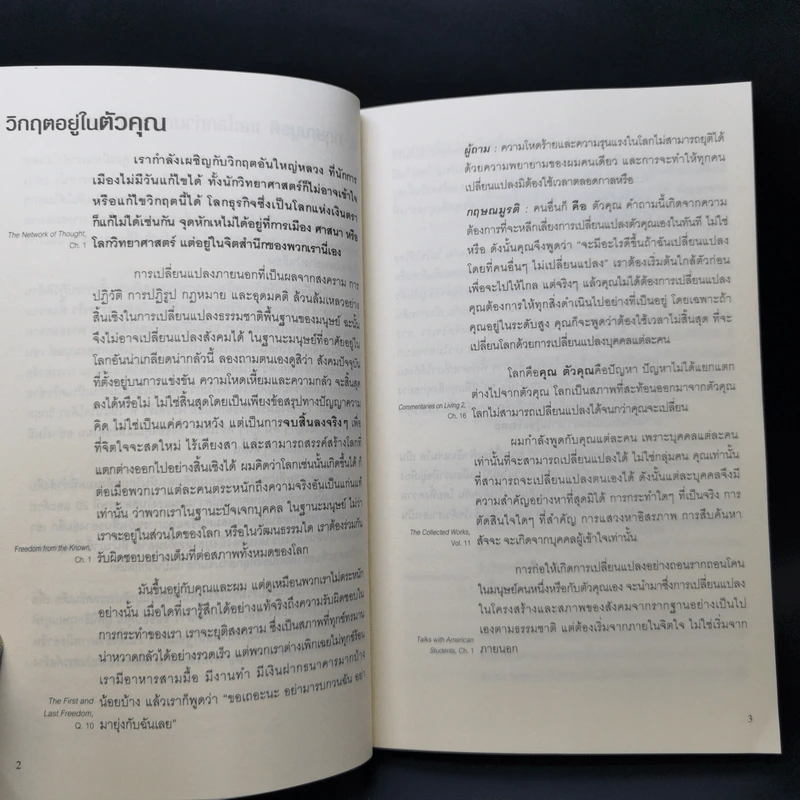 วิกฤตอยู่ในตัวคุณ
เรากำลังเผชิญกับวิกฤตอันใหญ่หลวง ที่นักการ
เมืองไม่มีวันแก้ไขได้ ทั้งนักวิทยาศาสตร์ก็ไม่อาจเข้าใจ
หรือแก้ไขวิกฤตนี้ได้ โลกธุรกิจซึ่งเป็นโลกแห่งเงินตรา
ก็แก้ไม่ได้เช่นกัน จุดหักเหไม่ได้อยู่ที่การเมือง ศาสนา หรือ
โลกวิทยาศาสตร์ แต่อยู่ในจิตสำนึกของพวกเรานี่เอง
The Network of Thought,
Ch. 1
การเปลี่ยนแปลงภายนอกที่เป็นผลจากสงคราม การ
ปฏิวัติ การปฏิรูป กฎหมาย และอุดมคติ ล้วนล้มเหลวอย่าง
สิ้นเชิงในการเปลี่ยนแปลงธรรมชาติพื้นฐานของมนุษย์ ฉะนั้น
จึงไม่อาจเปลี่ยนแปลงสังคมได้ ในฐานะมนุษย์ที่อาศัยอยู่ใน
โลกอันน่าเกลียดน่ากลัวนี้ ลองถามตนเองดูสิว่า สังคมปัจจุบัน
ที่ตั้งอยู่บนการแข่งขัน ความโหดเหี้ยมและความกลัว จะสิ้นสุด
ลงได้หรือไม่ ไม่ใช่สิ้นสุดโดยเป็นเพียงข้อสรุปทางปัญญาความ
คิด ไม่ใช่เป็นแค่ความหวัง แต่เป็นการจบสิ้นลงจริงๆ เพื่อ
ที่จิตใจจะสดใหม่ ไร้เดียงสา และสามารถสรรค์สร้างโลกที่
แตกต่างออกไปอย่างสิ้นเชิงได้ ผมคิดว่าโลกเช่นนั้นเกิดขึ้นได้ ก็
ต่อเมื่อพวกเราแต่ละคนตระหนักถึงความจริงอันเป็นแก่นแท้
เท่านั้น ว่าพวกเราในฐานะปัจเจกบุคคล ในฐานะมนุษย์ ไม่ว่า
เราจะอยู่ในส่วนใดของโลก หรือในวัฒนธรรมใด เราต้องร่วมกัน
รับผิดชอบอย่างเต็มที่ต่อสภาพทั้งหมดของโลก
Freedom from the Known,
Ch. 1
มันขึ้นอยู่กับคุณและผม แต่ดูเหมือนพวกเราไม่ตระหนัก
อย่างนั้น เมื่อใดที่เรารู้สึกได้อย่างแท้จริงถึงความรับผิดชอบใน
การกระทำของเรา เราจะยุติสงคราม ซึ่งเป็นสภาพที่ทุกข์ทรมาน
น่าหวาดกลัวได้อย่างรวดเร็ว แต่พวกเราต่างเพิกเฉยไม่ทุกข์ร้อน
เรามีอาหารสามมื้อ มีงานทำ มีเงินฝากธนาคารมากบ้าง
น้อยบ้าง แล้วเราก็พูดว่า “ขอเถอะนะ อย่ามารบกวนฉัน อย่า
มายุ่งกับฉันเลย”
The First and
Last Freedom,
Q. 10
2
ผู้ถาม : ความโหดร้ายและความรุนแรงในโลกไม่สามารถยุติได้
ด้วยความพยายามของผมคนเดียว และการจะทำให้ทุกคน
เปลี่ยนแปลงมิต้องใช้เวลาตลอดกาลหรือ
กฤษณมูรติ : คนอื่นก็ คือ ตัวคุณ คำถามนี้เกิดจากความ
ต้องการที่จะหลีกเลี่ยงการเปลี่ยนแปลงตัวคุณเองในทันที ไม่ใช่
หรือ ดังนั้นคุณจึงพูดว่า “จะมีอะไรดีขึ้นถ้าฉันเปลี่ยนแปลง
โดยที่คนอื่นๆ ไม่เปลี่ยนแปลง” เราต้องเริ่มต้นใกล้ตัวก่อน
เพื่อจะไปให้ไกล แต่จริงๆ แล้วคุณไม่ได้ต้องการเปลี่ยนแปลง
คุณต้องการให้ทุกสิ่งดำเนินไปอย่างที่เป็นอยู่ โดยเฉพาะถ้า
คุณอยู่ในระดับสูง คุณก็จะพูดว่าต้องใช้เวลาไม่สิ้นสุด ที่จะ
เปลี่ยนโลกด้วยการเปลี่ยนแปลงบุคคลแต่ละคน
โลกคือคุณ ตัวคุณคือปัญหา ปัญหาไม่ได้แยกแตก
ต่างไปจากตัวคุณ โลกเป็นสภาพที่สะท้อนออกมาจากตัวคุณ
โลกไม่สามารถเปลี่ยนแปลงได้จนกว่าคุณจะเปลี่ยน
Commentaries on Living 2,
Ch. 16
ผมกำลังพูดกับคุณแต่ละคน เพราะบุคคลแต่ละคน
เท่านั้นที่จะสามารถเปลี่ยนแปลงได้ ไม่ใช่กลุ่มคน คุณเท่านั้น
ที่จะสามารถเปลี่ยนแปลงตนเองได้ ดังนั้นแต่ละบุคคลจึงมี
ความสำคัญอย่างหาที่สุดมิได้ การกระทำใดๆ ที่เป็นจริง การ
ตัดสินใจใดๆ ที่สำคัญ การแสวงหาอิสรภาพ การสืบค้นหา
สัจจะ จะเกิดจากบุคคลผู้เข้าใจเท่านั้น
The Collected Works,
Vol. 11
การก่อให้เกิดการเปลี่ยนแปลงอย่างถอนรากถอนโคน
ในมนุษย์คนหนึ่งหรือกับตัวคุณเอง จะนำมาซึ่งการเปลี่ยนแปลง
ในโครงสร้างและสภาพของสังคมจากรากฐานอย่างเป็นไป
เองตามธรรมชาติ แต่ต้องเริ่มจากภายในจิตใจ ไม่ใช่เริ่มจาก
ภายนอก
Talks with American
Students, Ch. 1
3